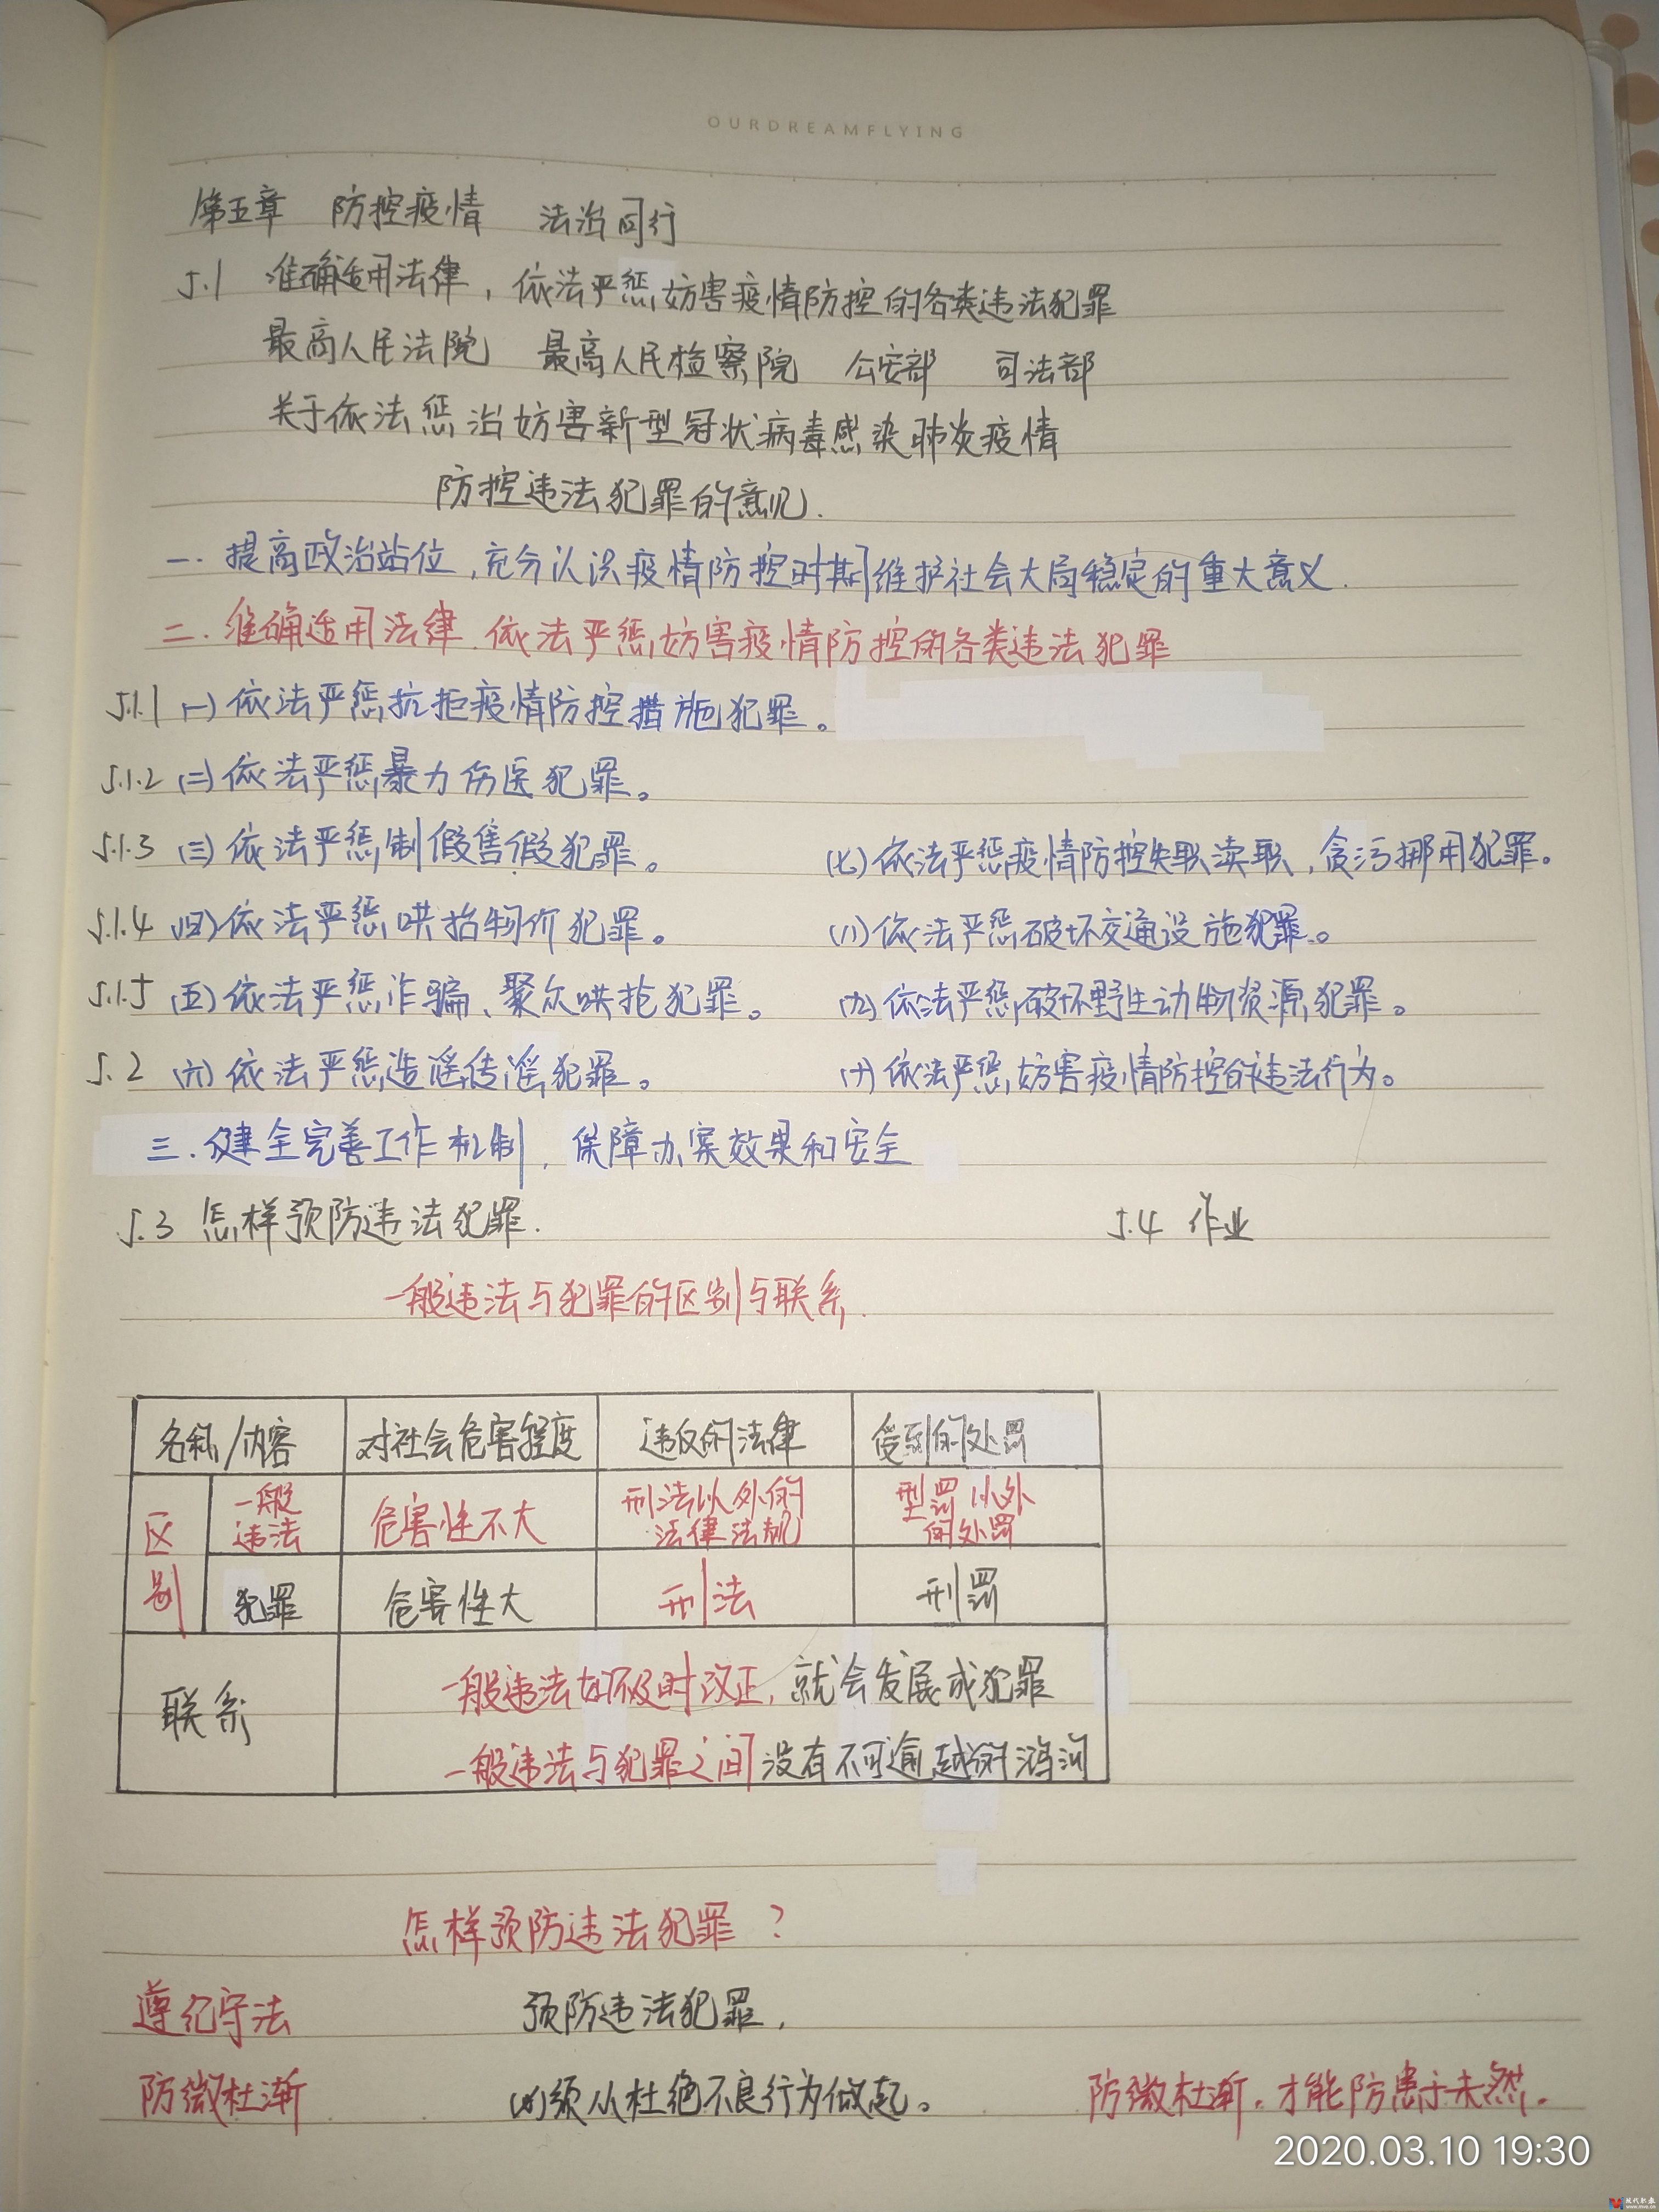 OURDREAMFLYING
第五章 防控疫情 法治同行
5.1 准确适用法律，依法严惩妨害疫情防控的各类违法犯罪
最高人民法院 最高人民检察院 公安部 司法部
关于依法惩治妨害新型冠状病毒感染肺炎疫情
防控违法犯罪的意见.
一.提高政治站位,充分认识疫情防控时期维护社会大局稳定的重大意义.
二.准确适用法律.依法严惩妨害疫情防控的各类违法犯罪
5.1.1 (一)依法严惩抗拒疫情防控措施犯罪。
5.1.2 (二)依法严惩暴力伤医犯罪。
5.1.3 (三)依法严惩制假售假犯罪。 (七)依法严惩疫情防控失职渎职,贪污挪用犯罪。
5.1.4 (四)依法严惩哄抬物价犯罪。 (八)依法严惩破坏交通设施犯罪。
5.1.5 (五)依法严惩诈骗、聚众哄抢犯罪。 (九)依法严惩破坏野生动物资源犯罪。
5.2 (六)依法严惩造谣传谣犯罪。 (十)依法严惩妨害疫情防控的违法行为。
三.健全完善工作机制,保障办案效果和安全
5.3 怎样预防违法犯罪. 5.4 作业
一般违法与犯罪的区别与联系.
名称/内容 对社会危害程度 违反的法律 受到的处罚
区别 一般违法 危害性不大 刑法以外的法律法规 型罚以外的处罚
犯罪 危害性大 刑法 刑罚
联系 一般违法如不及时改正,就会发展成犯罪
一般违法与犯罪之间没有不可逾越的鸿沟
怎样预防违法犯罪？
遵纪守法 预防违法犯罪,
防微杜渐 必须从杜绝不良行为做起。 防微杜渐.才能防患于未然.
2020.03.10 19:30
现代职教